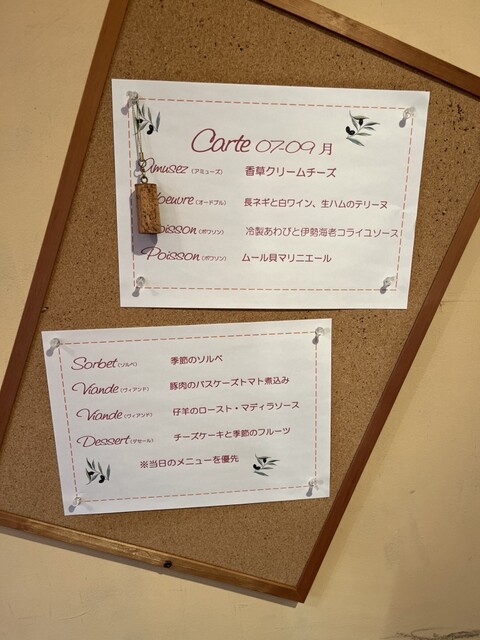 Carte 07-09 月
Amusez (アミューズ) 香草クリームチーズ
oeuvre (オードブル) 長ネギと白ワイン、生ハムのテリーヌ
Poisson (ポワソン) 冷製あわびと伊勢海老コライユソース
Poisson (ポワソン) ムール貝マリニエール
Sorbet (ソルベ) 季節のソルベ
Viande (ヴィアンド) 豚肉のバスケーズトマト煮込み
Viande (ヴィアンド) 仔羊のロースト・マディラソース
Dessert (デセール) チーズケーキと季節のフルーツ
※当日のメニューを優先